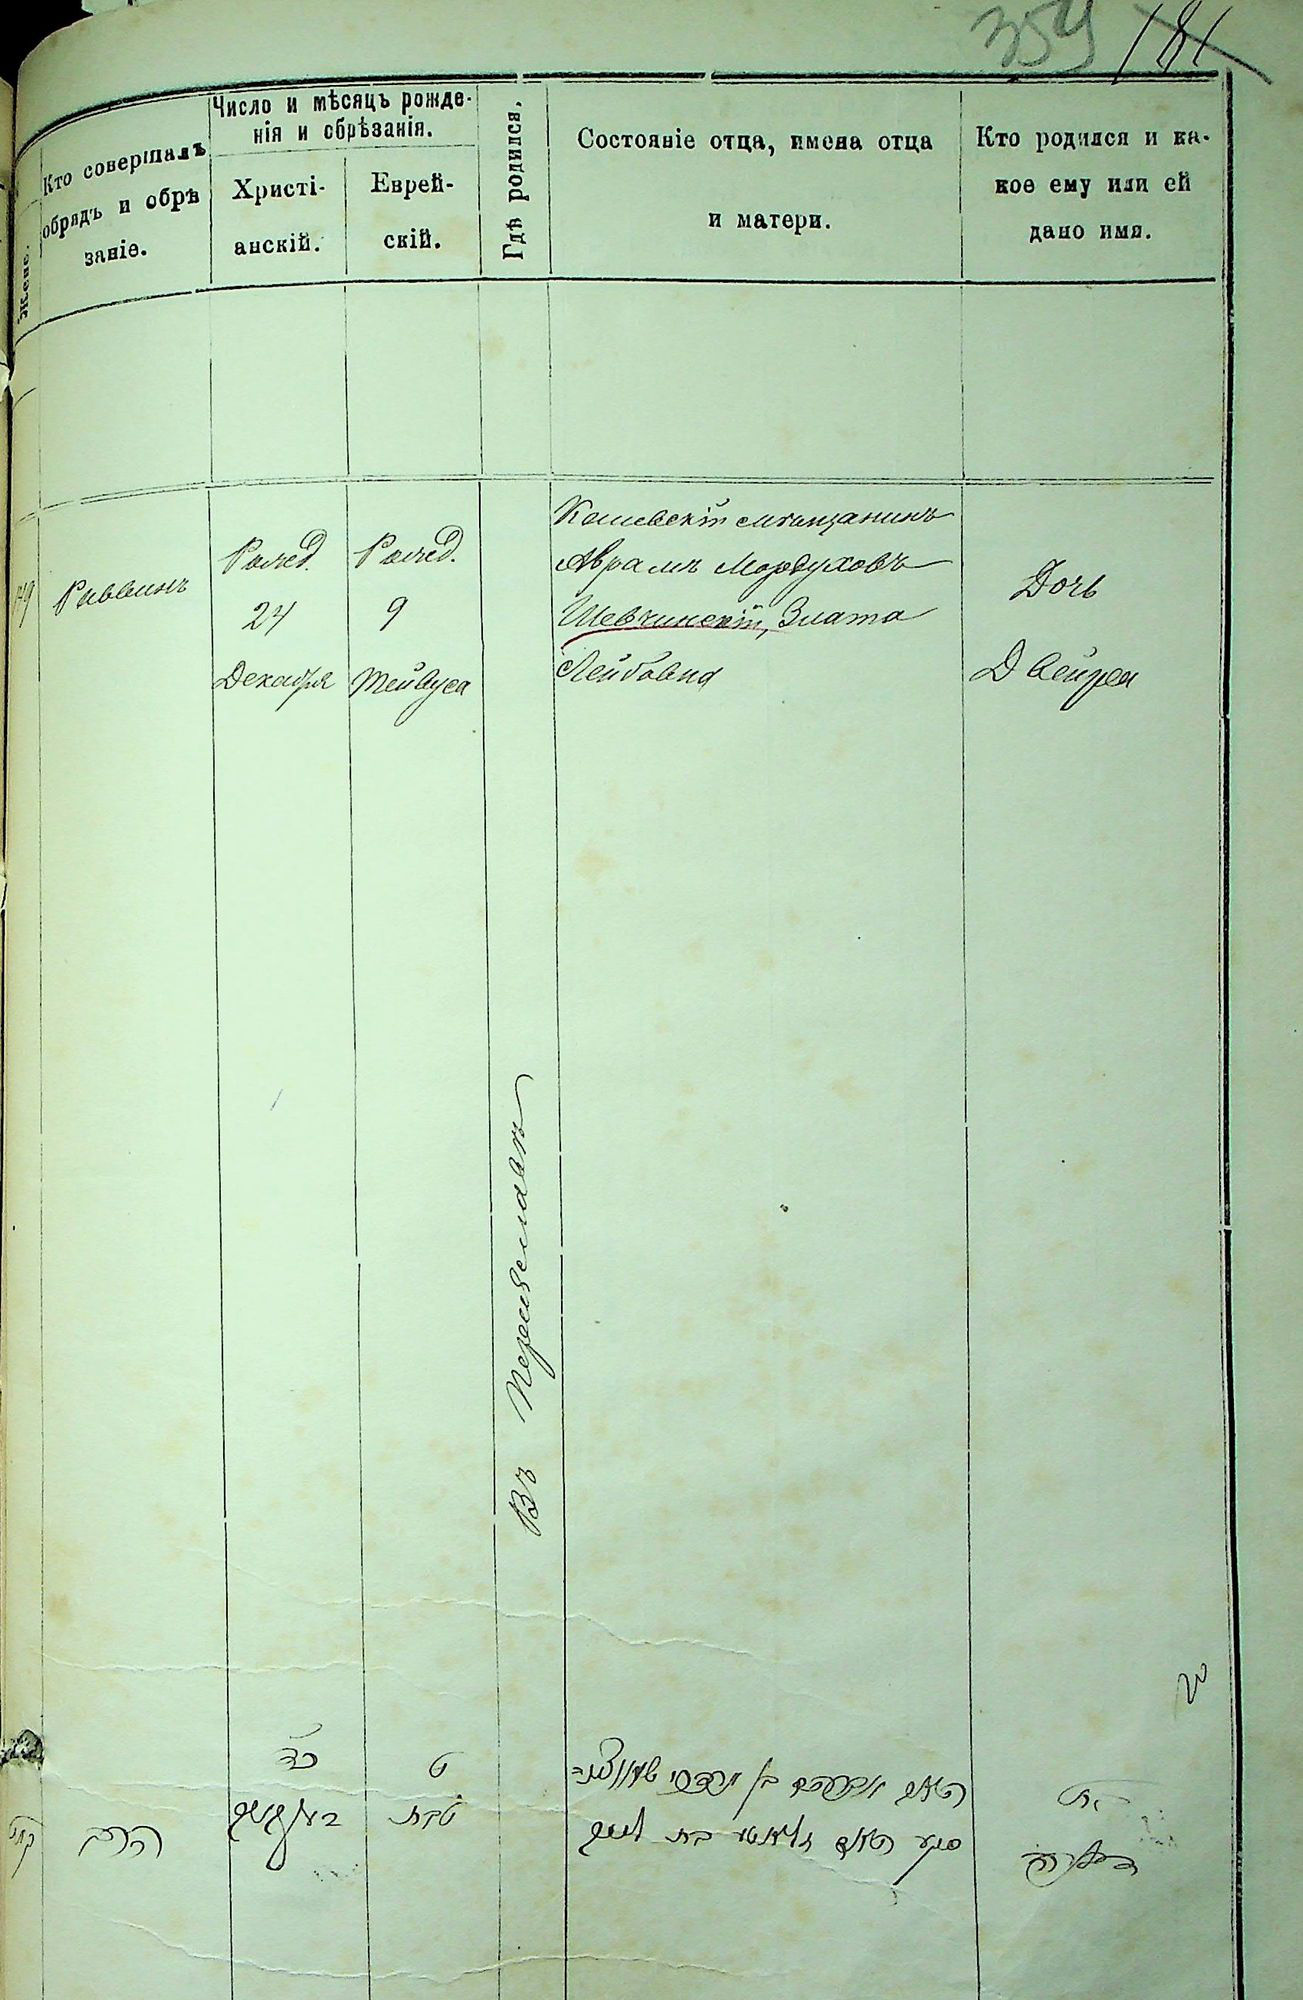 359 181
Женс.
Кто совершалъ
обрядъ и обрѣ
заніе.
Число и мѣсяцъ рожде-
нія и обрѣзанія.
Христі-
анскій.
Еврей-
скій.
Гдѣ родился.
Состояніе отца, имена отца
и матери.
Кто родился и ка-
кое ему или ей
дано имя.
Раввинъ
Рожд.
24
Декабря
Рожд.
9
Тейвуса
Въ Переяславѣ
мѣщанинъ
Аврамъ Мордуховъ
Шевчинскій, Злата
Лейбовна
Дочь
Двейра
הרב
כד
ט
טבת
בן מרדכי
בת